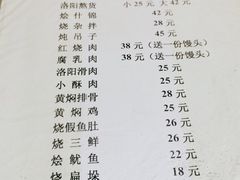 洛阳熬货 小 25元 大 42元
烩什锦 42元
烧杂拌 28元
炖吊子 45元
红烧肉 38元(送一份馒头)
腐乳肉 38元(送一份馒头)
洛阳滑肉 25元
小酥肉 25元
黄焖排骨 28元
黄焖鸡 25元
烧假鱼肚 26元
烧三鲜 26元
烩鱿鱼 22元
烧扁垛 18元